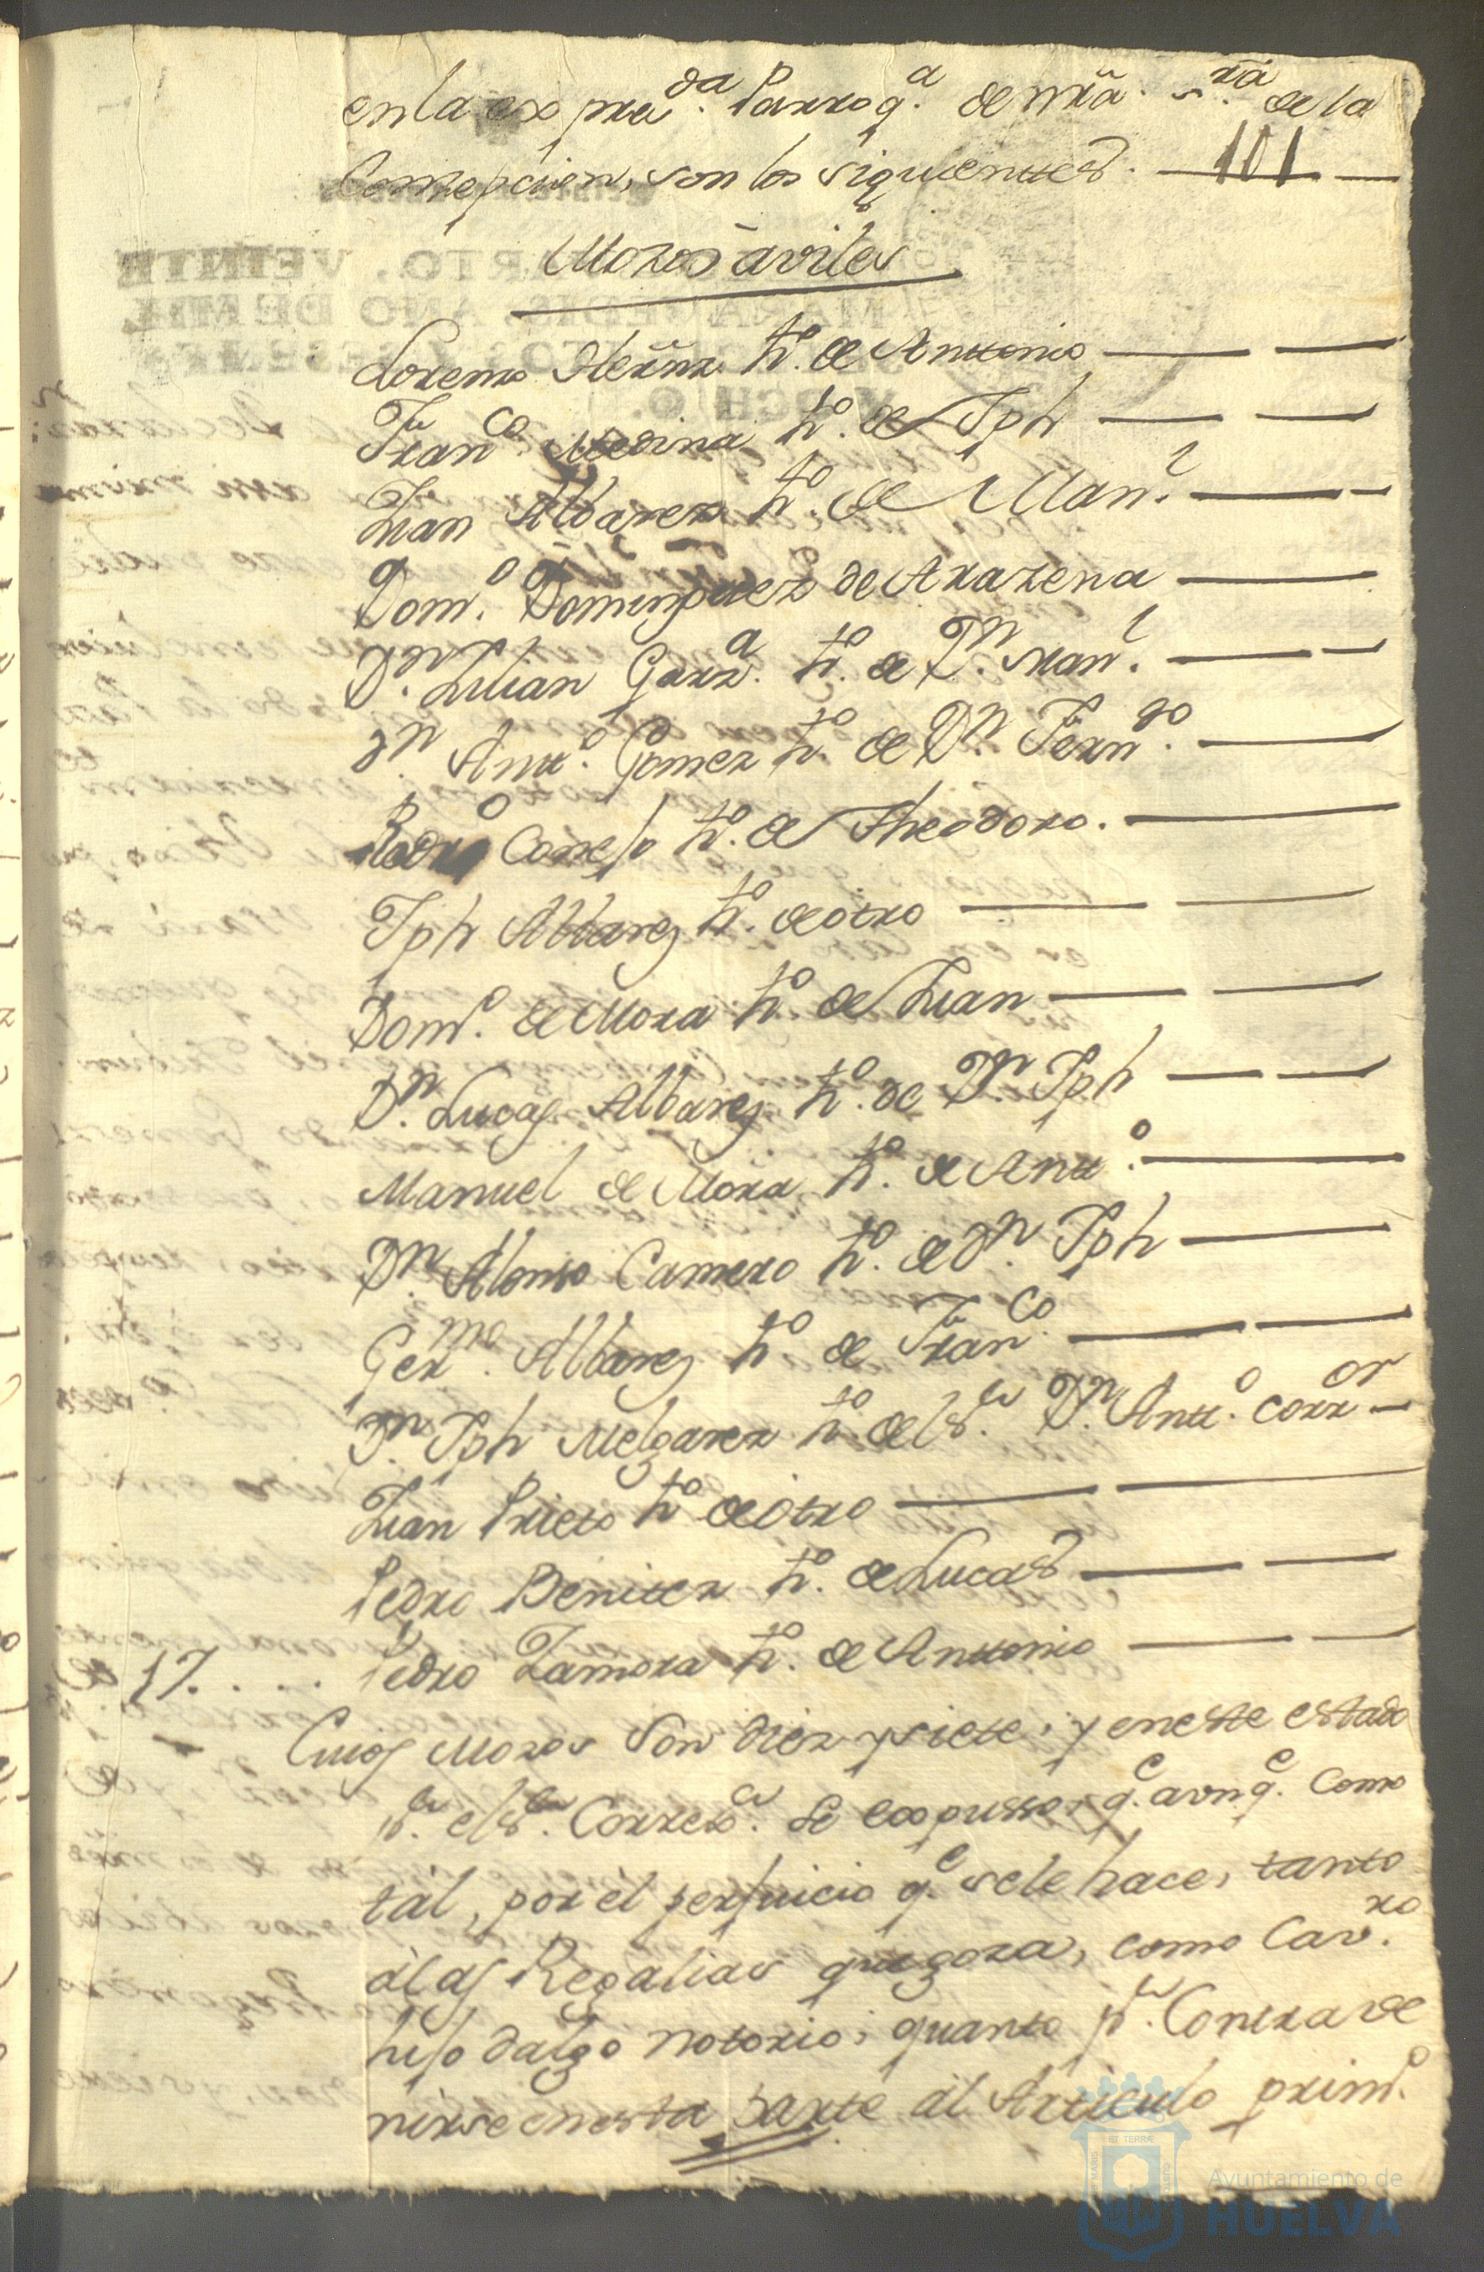 en la expresda. Parroqa. de nra. sra. de la
Conzepcion, son los siguienttes. 101
Mozos aviles
Lorenzo Hernz. ho. de Anttonio
Franco. Medina ho. de Jph
Juan Albarez ho. de Manl.
Domo. Dominguez de Arazena
Dn. Julian Garza. ho. de Dn. Manl.
Dn. Antto. Gomez ho. de Dn. Ferndo.
Rodro Conejo ho. de Theodoro.
Jph Albarez ho. de otro
Domo. de Mora ho. de Juan
Dn. Lucas Albarez ho. de Dn. Jph
Manuel de Mora ho. de Antto.
Dn. Alonso Camero ho. de Dn. Jph
Germo. Albarez ho. de Franco.
Dn. Jph Melgarez ho. del Sr. Dn. Antto. corror
Juan Prieto ho de otro
Pedro Benittez ho. de Lucas
17.... Pedro Zamora ho. de Anttonio
Cuios Mozos son diez y siete, y en este estado
pr. el Sr. Correxr. se expusso, qe. avnqe. como
tal, por el perjuicio qe. se le hace, tanto
à las Regalias que goza, como Cavro.
hijo dalgo notorio, quanto pr. Contrave
nirse en esta parte al Articulo primo.
ET TERRÆ
Ayuntamiento de
HUELVA